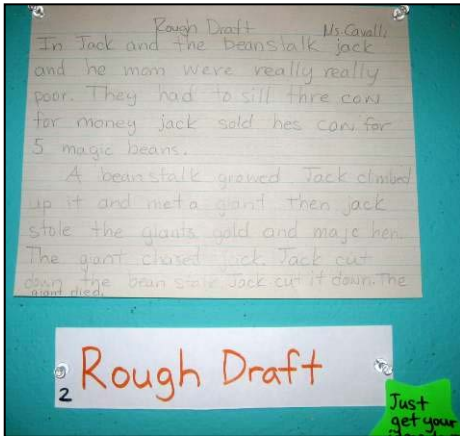 Rough Draft Ms. Cavalli
In Jack and the beanstalk jack
and he mom were really really
poor. They had to sill thre cow
for money jack sold hes cow for
5 magic beans.
A bean stalk growed Jack climbed
up it and met a giant then jack
stole the giants gold and majc hen.
The giant chased jack Jack cut
down the bean stalk Jack cut it down. The
giant died.
Rough Draft
2
Just
get your